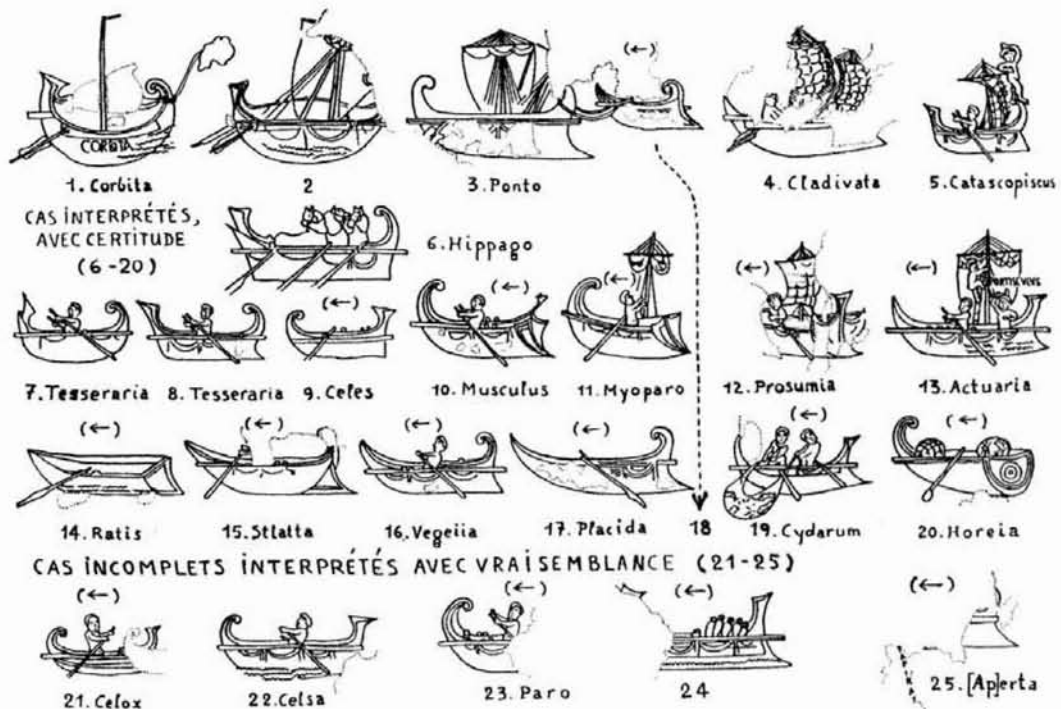 CORBITA
(←)
1. Corbita
2
3. Ponto
4. Cladivata
5. Catascopiscus
CAS INTERPRÉTÉS,
AVEC CERTITUDE
(6-20)
6. Hippago
(←)
(←)
(←)
(←)
(←)
7. Tesseraria
8. Tesseraria
9. Celes
10. Musculus
11. Myoparo
12. Prosumia
13. Actuaria
(←)
(←)
(←)
(←)
(←)
(←)
14. Ratis
15. Stlatta
16. Vegeiia
17. Placida
18
19. Cydarum
20. Horeia
CAS INCOMPLETS INTERPRÉTÉS AVEC VRAISEMBLANCE (21-25)
(←)
(←)
(←)
(←)
(←)
21. Celox
22. Celsa
23. Paro
24
25. [Ap]erta